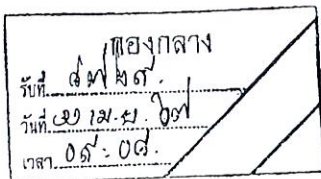 กองกลาง
รับที่ ๘๗๒๙.
วันที่ เม.ย. ๖๗
เวลา ๐๙:๐๘.